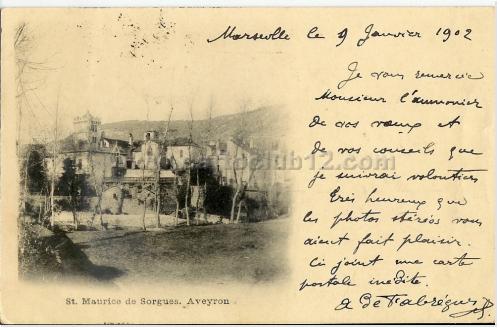 Marseille le 9 Janvier 1902
Je vous remercie
Monsieur l'aumonier
de vos vœux et
de vos conseils que
je suivrai volontiers
Très heureux que
les photos stéréos vous
aient fait plaisir.
Ci joint une carte
postale inédite.
A De Fabrègues
cartoclub12.com
St. Maurice de Sorgues. Aveyron